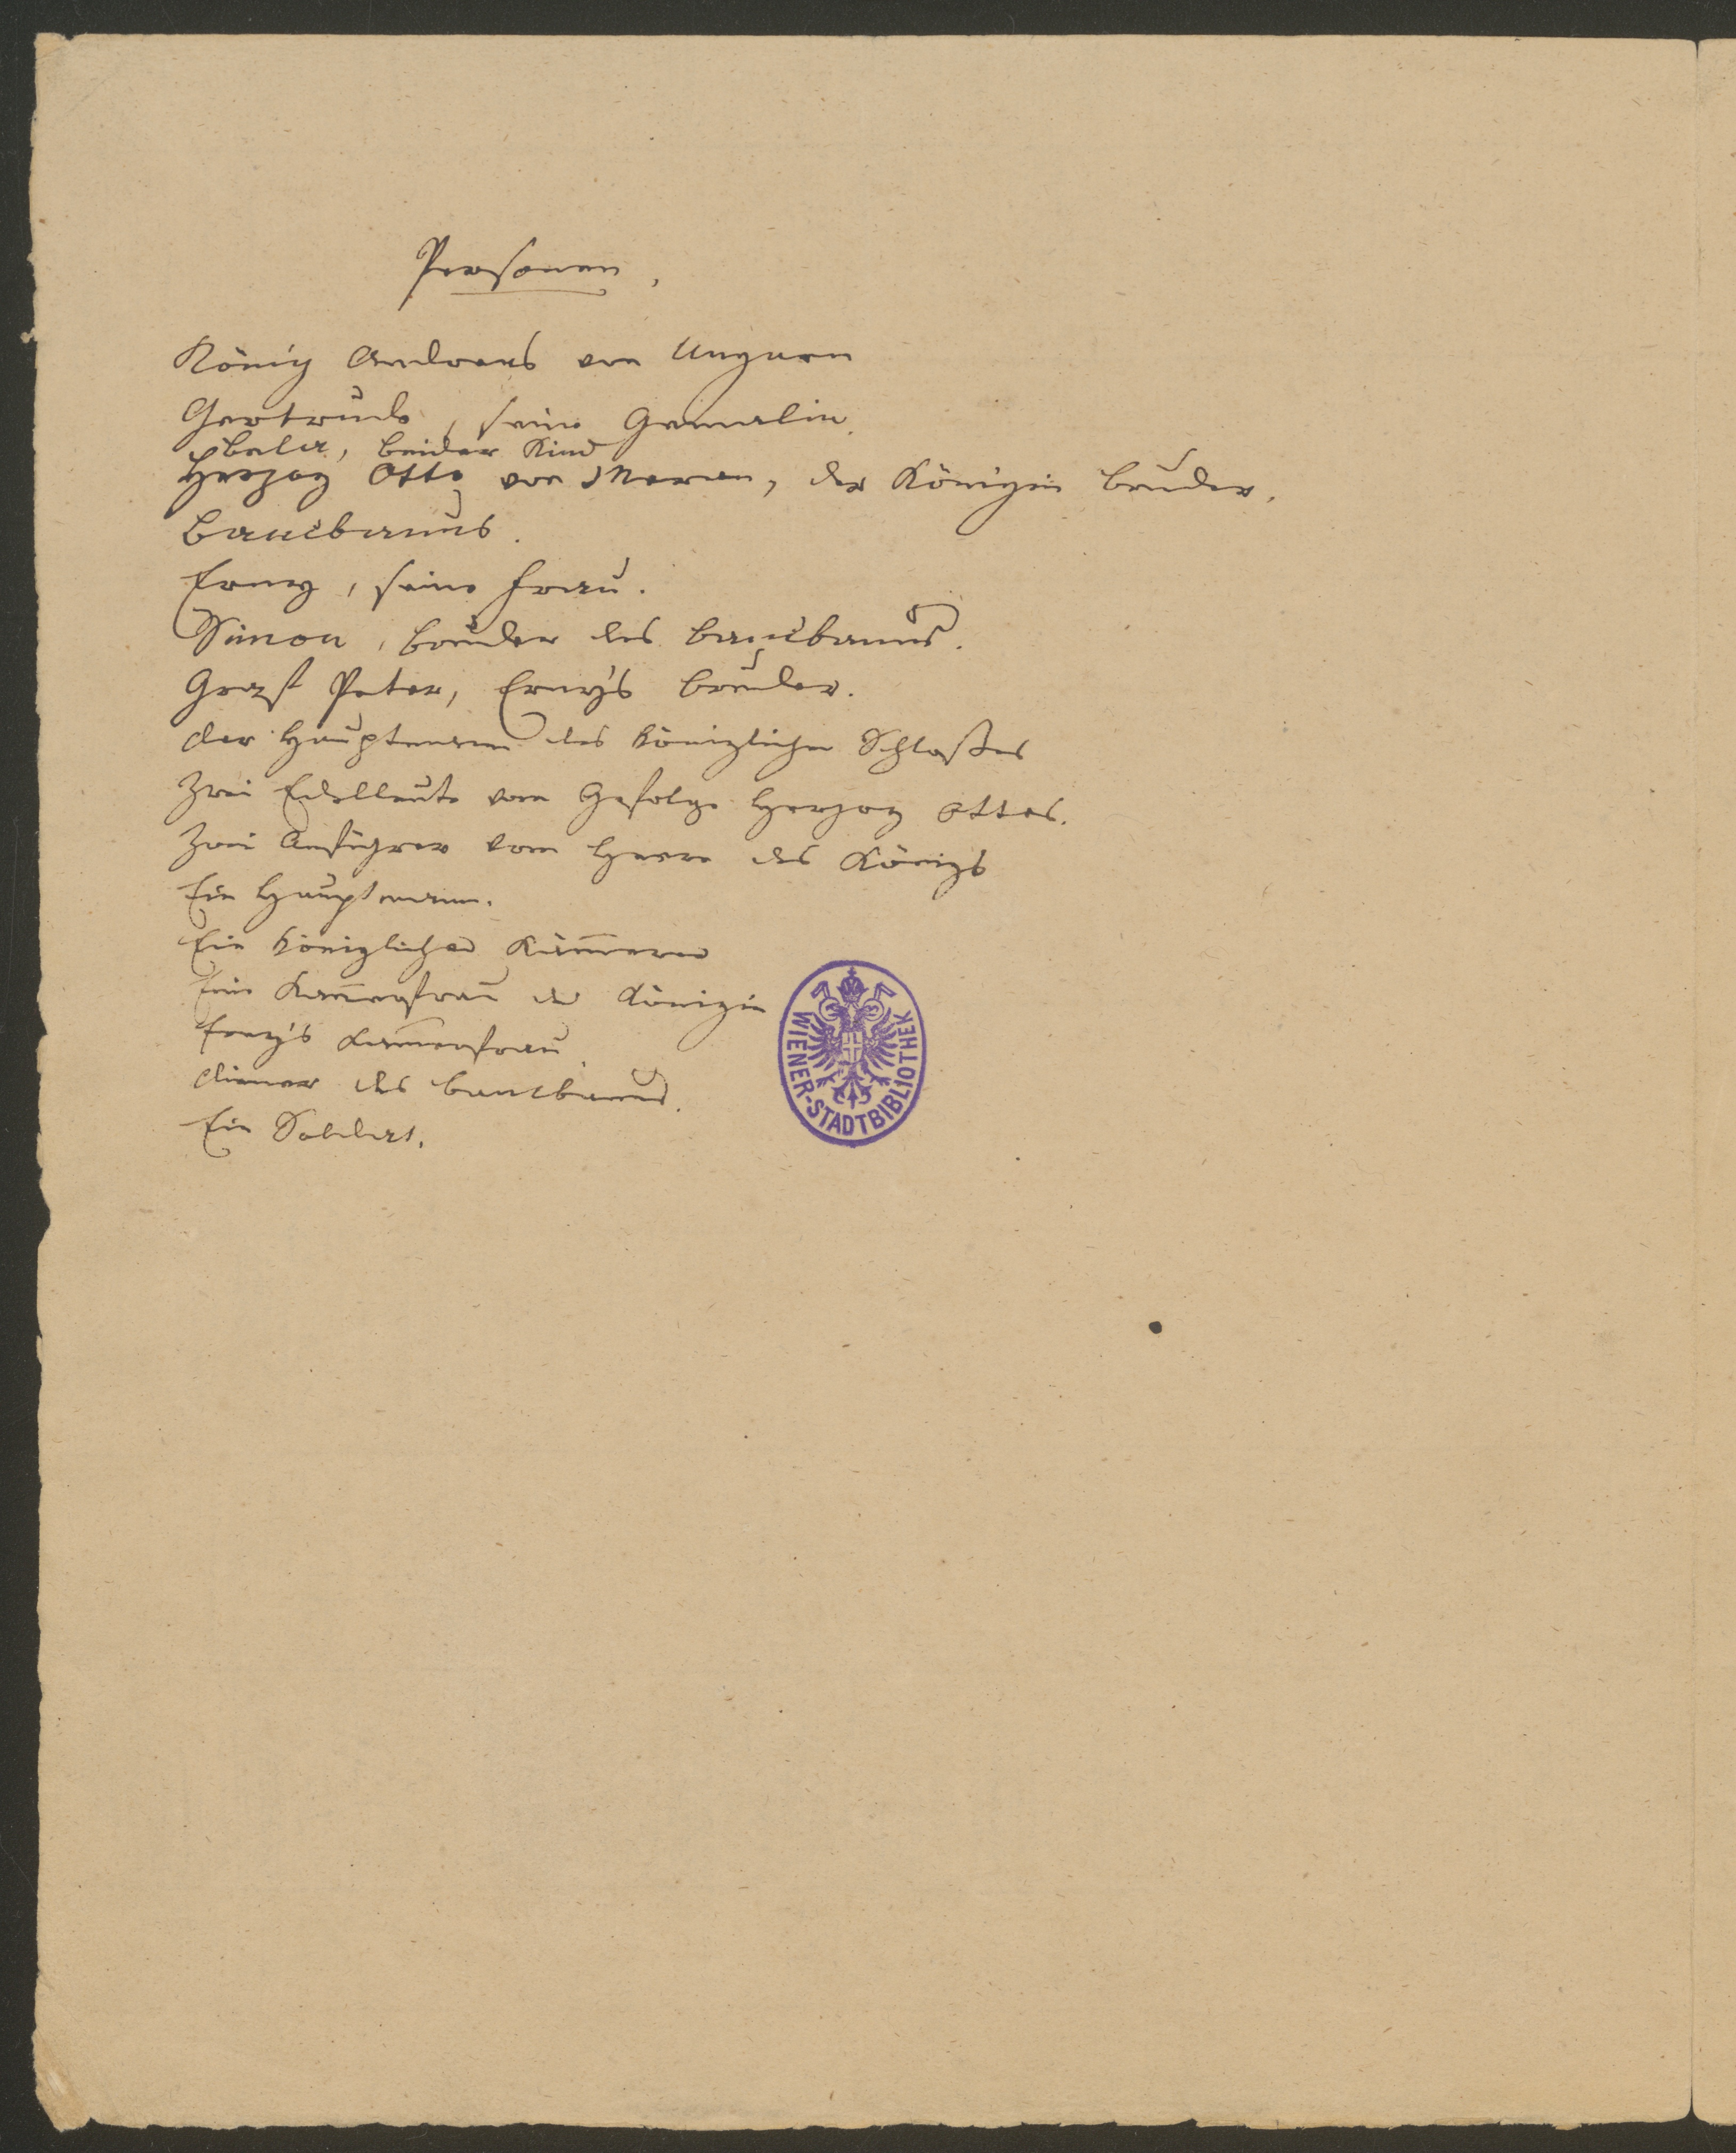 Personen.
König Andreas von Ungarn
Gertrude, seine Gemalin.
Bela, beider Kind
Herzog Otto von Meran, der Königin Bruder.
Bancbanus.
Erny, seine Frau.
Simon, Bruder des Bancbanus.
Graf Peter, Erny's Bruder.
Der Hauptmann des königlichen Schloßes
Zwei Edelleute vom Gefolge Herzog Ottos.
Zwei Anführer vom Heere des Königs
Ein Hauptmann.
Ein königlicher Kämmerer
Eine Kammerfrau der Königin
Erny's Kammerfrau.
Diener des Bancbanus.
Ein Soldat.
WIENER-STADTBIBLIOTHEK